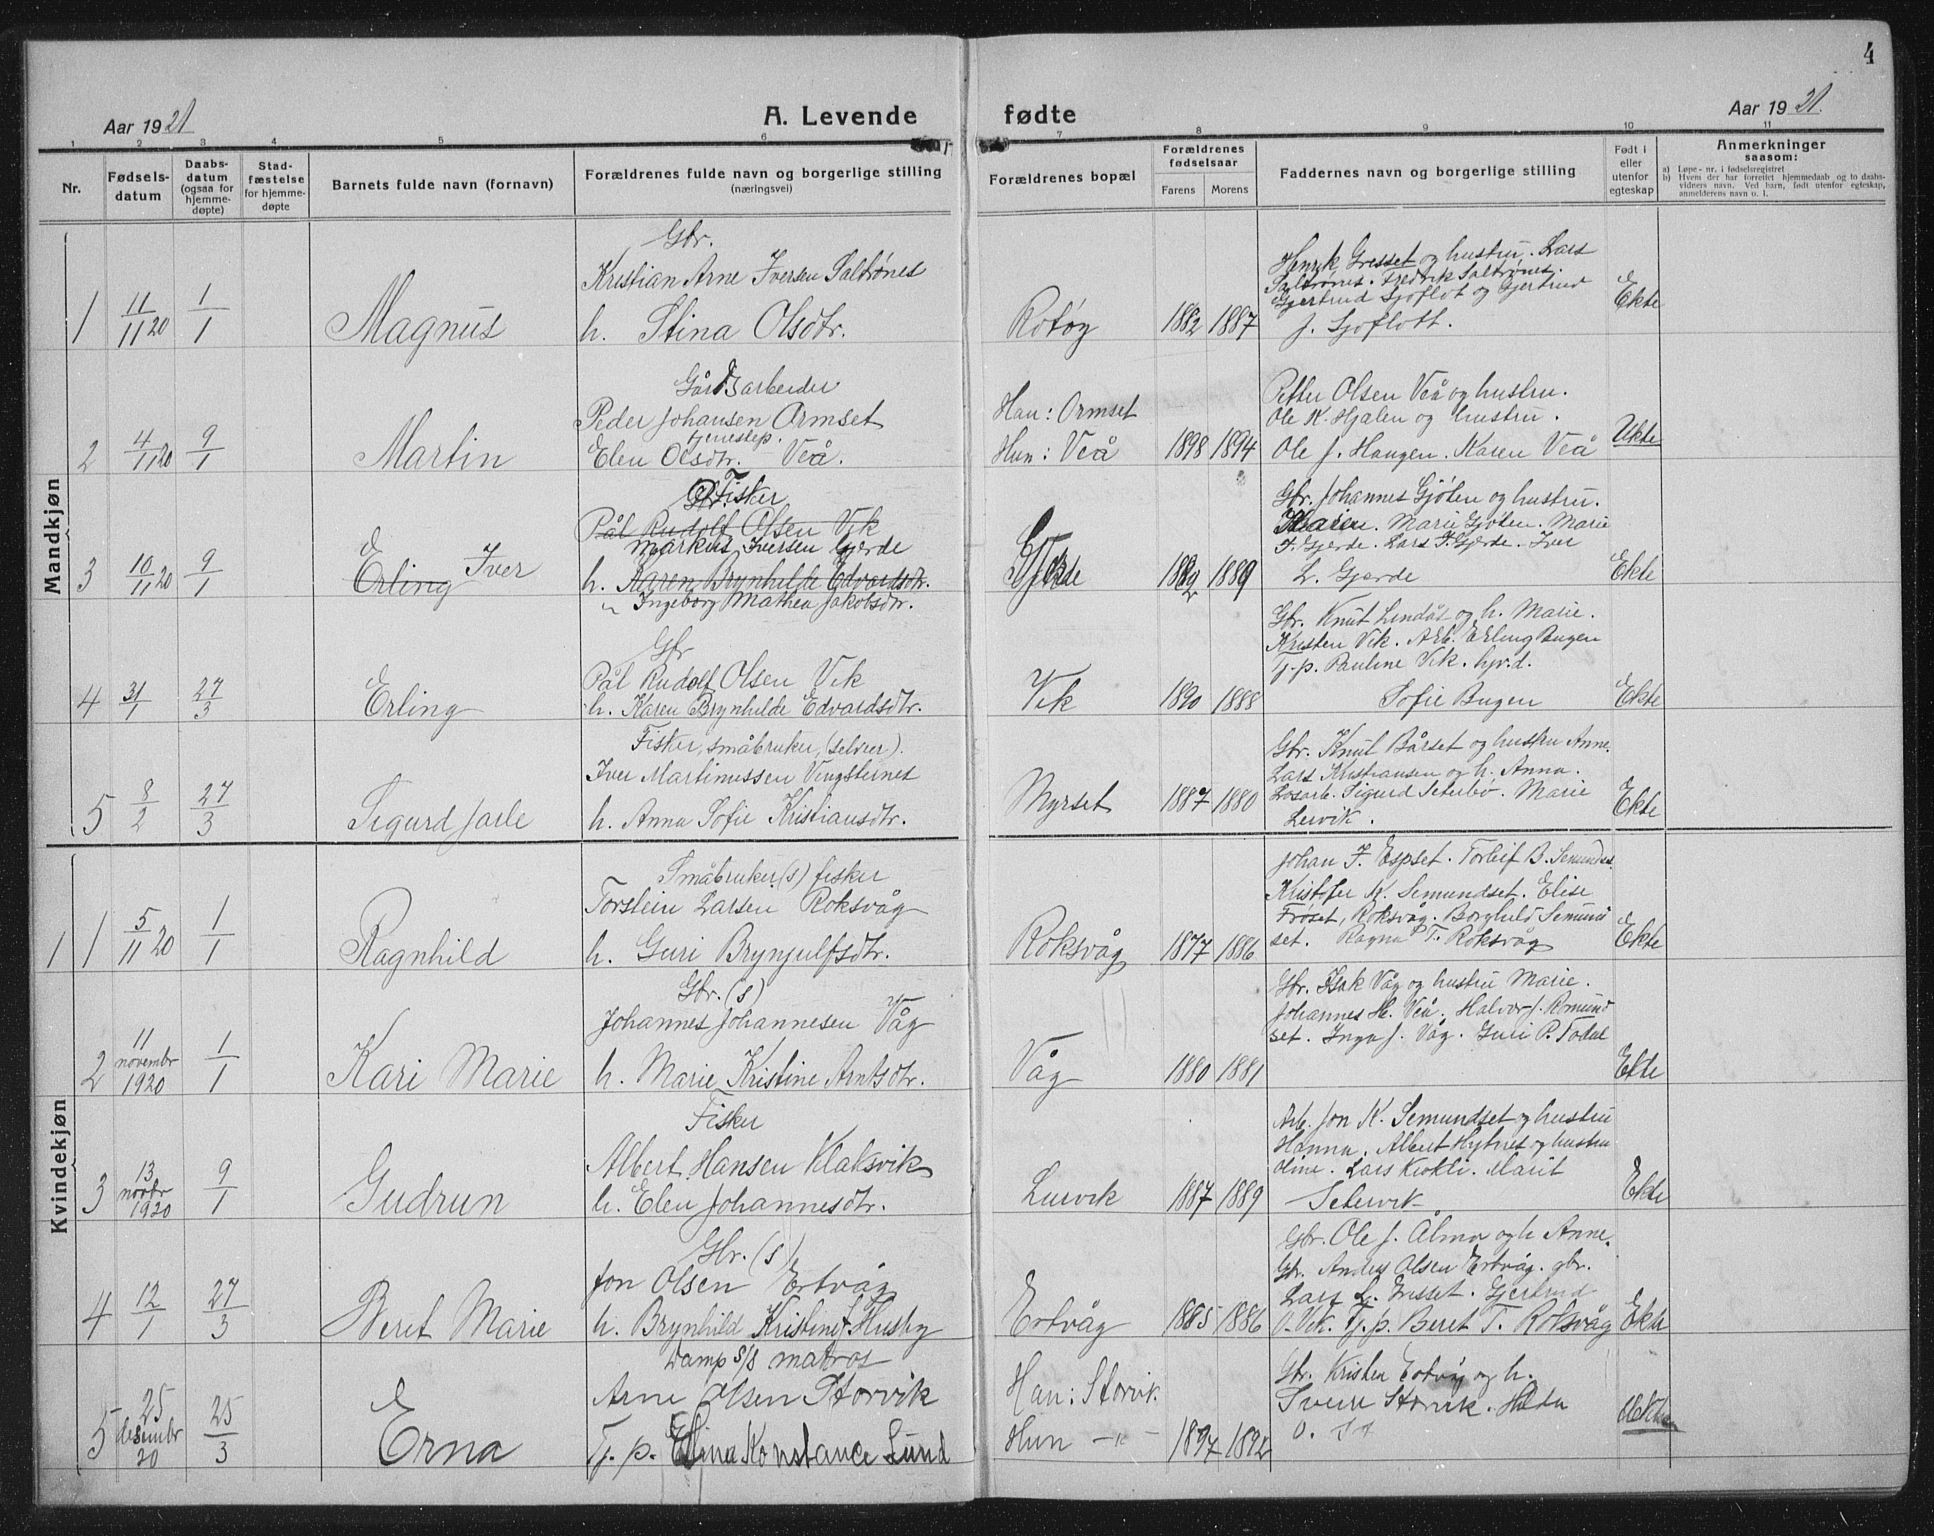 4
Aar 1921
A. Levende
fødte
Aar 1921.
1 2 3 4 5 6 7 8 9 10 11
Nr.
Fødsels-
datum
Daabs-
datum
(ogsaa for
hjemme-
døpte)
Stad-
fæstelse
for hjemme-
døpte
Barnets fulde navn (fornavn)
Forældrenes fulde navn og borgerlige stilling
(næringsvei)
Forældrenes bopæl
Forældrenes
fødselsaar
Farens Morens
Faddernes navn og borgerlige stilling
Født i
eller
utenfor
egteskap
Anmerkninger
saasom:
a) Løpe-nr. i fødselsregistret
b) Hvem der har forrettet hjemmedaab og to daabs-
vidners navn. Ved barn, født utenfor egteskap,
anmelderens navn o. l.
Mandkjøn
1 11/11 20 1/1 Magnus
Gbr.
Kristian Arne Iversen Saltrønes
h. Stina Olsdtr.
Rotøy 1882 1887
Henrik Gresset og hustru. Lars
Saltrønes. Fredrik Saltrønes.
Gjertrud Sjøflot og Gjertrud
J. Sjøflott.
Ekte
2 4/11 20 9/1 Martin
Gårdsarbeider
Peder Johansen Ormset
tjenestep.
Elen Olsdtr. Veå.
Han: Ormset
Hun: Veå 1898 1894
Petter Olsen Veå og hustru.
Ole K. Hjalen og hustru.
Ole J. Haugen. Karen Veå
Uekte
3 10/11 20 9/1 Erling Iver
Fisker
Pål Rudolf Olsen Vik
Markus Iversen Gjerde
h. Karen Brynhilde Edvardsdtr.
" Ingeborg Mathea Jakobsdtr.
Gjerde 1882 1889
Gbr. Johannes Gjøten og hustru.
Karen. Marie Gjøten. Marie
I. Gjerde. Lars I. Gjerde. Iver
L. Gjerde
Ekte
4 31/1 27/3 Erling
Gbr
Pål Rudolf Olsen Vik
h. Karen Brynhilde Edvardsdtr.
Vik 1890 1888
Gbr. Knut Lendås og h. Marie.
Kristen Vik. Arb. Erling Bugen
Tj.p. Pauline Vik. hjv.d.
Sofie Bugen
Ekte
5 8/2 27/3 Sigurd Jarle
Fisker, småbruker, (selvier).
Iver Martinussen Vingsternes
h. Anna Sofie Kristiansdtr.
Myrset 1887 1880
Gbr. Knut Bårset og hustru Anne.
Lars Kristiansen og h. Anna.
Løsarb. Sigurd Seterbø. Marie
Leirvik.
Ekte
Kvindekjøn
1 1 5/11 20 1/1 Ragnhild
Småbruker (s) fisker
Torstein Larsen Roksvåg
h. Guri Brynjulfsdtr.
Roksvåg 1877 1886
Johan I. Espset. Torleif B. Semundset
Kristofer K. Semundset. Elise
Frøset, Roksvåg. Borghild Semund
set. Ragna T. Roksvåg
Ekte
2 11 novembr 1920 1/1 Kari Marie
Gbr. (s)
Johannes Johannesen Våg
h. Marie Kristine Arntsdtr.
Våg 1880 1881
Gbr. Isak Våg og hustru Marie.
Johannes H. Veå. Halvor J. Romund
set. Inga J. Våg. Guri P. Todal
Ekte
3 13 novbr 1920 9/1 Gudrun
Fisker
Albert Hansen Klaksvik
h. Elen Johannesdtr.
Leirvik 1887 1889
Arb. Jon K. Semundset og hustru
Hanna. Albert Hybnes og hustru
Oline. Lars Krokli. Marit
Setervik
Ekte
4 12/1 27/3 Beret Marie
Gbr. (s)
Jon Olsen Ertvåg
h. Brynhild Kristine I Husby
Ertvåg 1885 1886
Gbr. Ole J. Ålmo og h Anne.
Gbr. Anders Olsen Ertvåg. gbr.
Lars L. Gresset. Gjertrud
O. Vik. Tj.p. Beret T. Roksvåg
Ekte
5 25 desembr 20 25/3 Erna
Damp s/s matros
Arne Olsen Storvik
Tj. p. Elina Konstance Lund
Han: Storvik.
Hun — " — 1897 1892
Gbr. Kristen Ertvåg og h.
Sverre Storvik. Hilda
Uekte